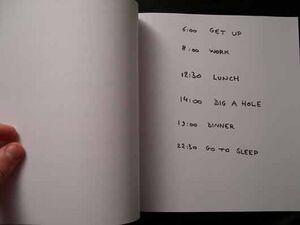 6:00 GET UP
8:00 WORK
12:30 LUNCH
14:00 DIG A HOLE
19:00 DINNER
22:30 GO TO SLEEP